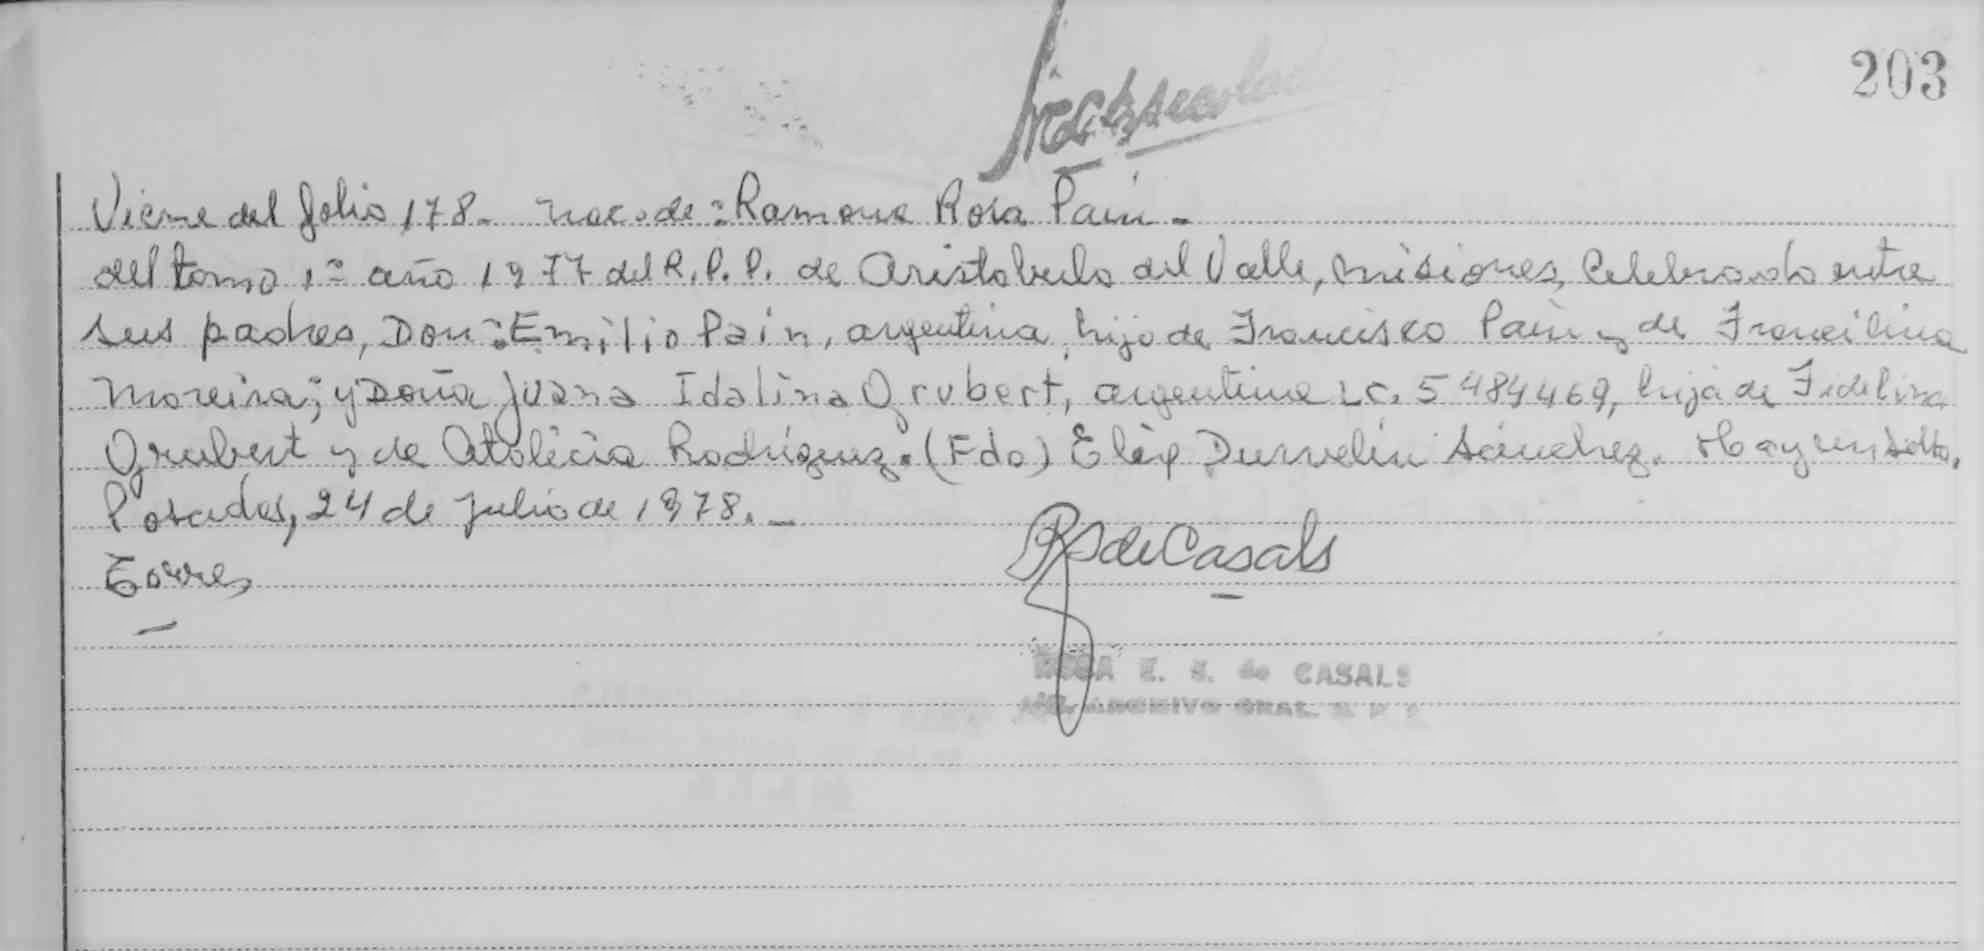 203
Viene del folio 178.- nac. de: Ramona Rosa Pain.-
del tomo 1º año 1977 del R.P.P. de Aristobulo del Valle, Misiones, Celebrado entre
sus padres, Don: Emilio Pain, argentino, hijo de Francisco Pain y de Francilina
Moreira; y Doña Juana Idalina Grubert, argentina LC. 5484469, hija de Fidelina
Grubert y de Rodriguez. (Fdo) Durvelin Sánchez. Hay un sello.
Posadas, 24 de Julio de 1978.-
Torres
de Casals
ROSA E. S. de CASALS
ARCHIVO GRAL.